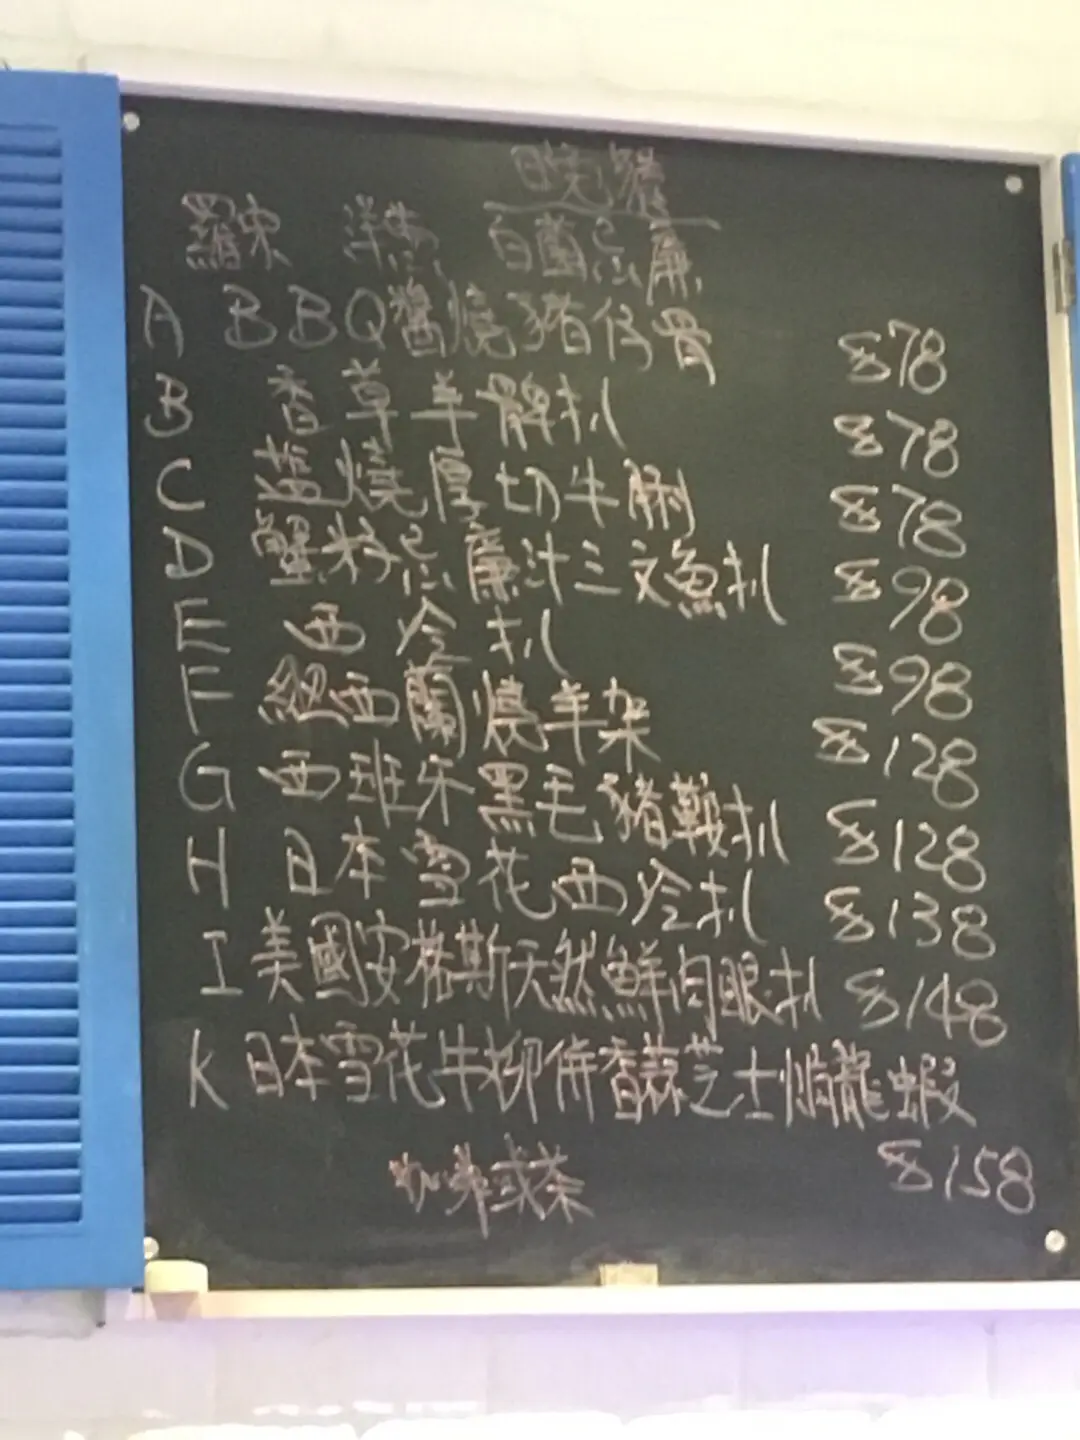 晚餐
羅宋 洋葱 白菌忌廉
A BBQ醬燒豬仔骨 $78
B 香草羊髀扒 $78
C 鹽燒厚切牛脷 $78
D 蟹籽忌廉汁三文魚扒 $98
E 西冷扒 $98
F 紐西蘭燒羊架 $128
G 西班牙黑毛豬鞍扒 $128
H 日本雪花西冷扒 $138
I 美國安格斯天然鮮肉眼扒 $148
K 日本雪花牛柳併香蒜芝士焗龍蝦
咖啡或茶 $158